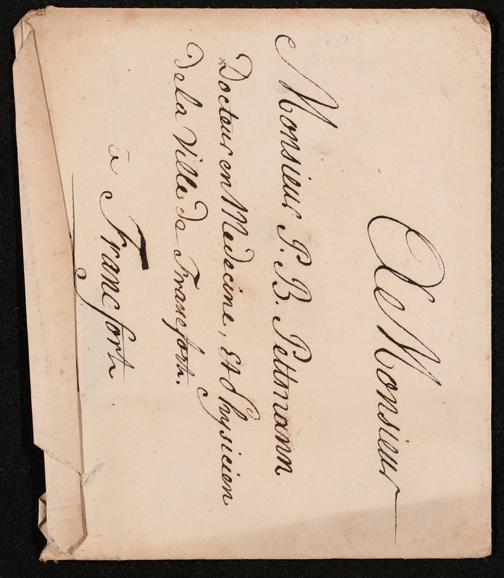 A Monsieur
Monsieur P. B. Pettmann
Docteur en Medecine, et Physicien
de la Ville de Francfort.
à Francfort.